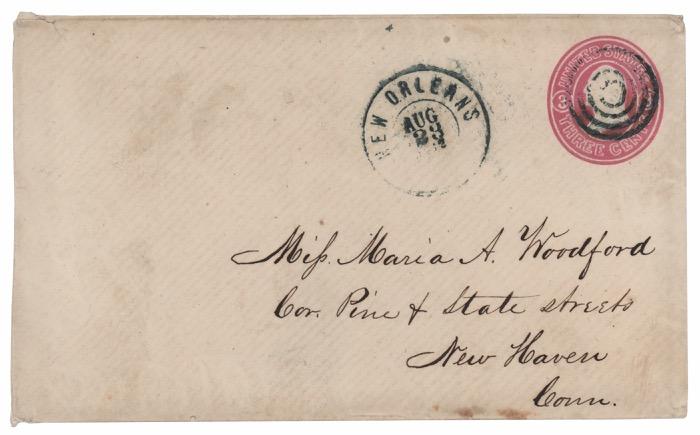 NEW ORLEANS
AUG
23
UNITED STATES
3 THREE CENTS
Miſs. Maria A. Woodford
Cor. Pine & State streets
New Haven
Conn.